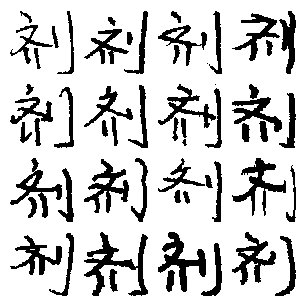 剂剂剂剂
剂剂剂剂
剂剂剂剂
剂剂剂剂